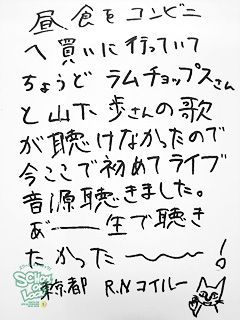 昼食をコンビニ
へ買いに行っていて
ちょうど ラムチョップスさん
と山下歩さんの歌
が聴けなかったので
今ここで初めてライブ
音源聴きました。
あ゛ー生で聴き
たかった〜〜!
東京都 R.N コイルー
SCHOOL OF LOCK!